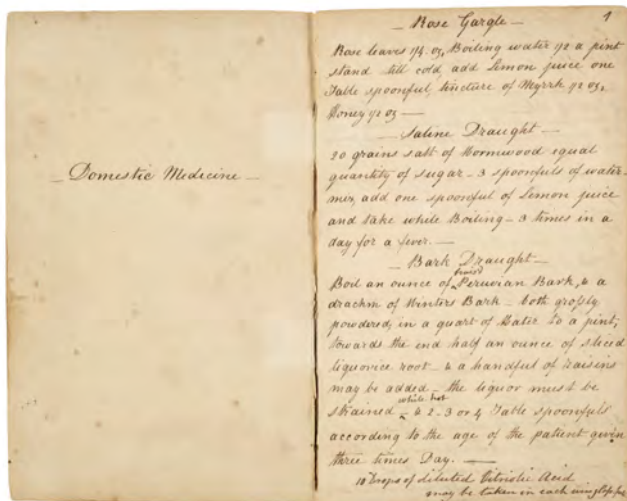 _ Domestic Medicine _
1
_ Rose Gargle _
Rose leaves 1/4 oz, Boiling water 1/2 a pint
stand till cold, add Lemon juice one
Table spoonful, tincture of Myrrh 1/2 oz,
Honey 1/2 oz —
_ Saline Draught _
20 grains salt of Wormwood equal
quantity of sugar _ 3 spoonfuls of water
mix, add one spoonful of Lemon juice
and take while Boiling _ 3 times in a
day for a fever. —
_ Bark Draught _
Boil an ounce of Peruvian Bark, & a
drachm of Winters Bark _ both grossly
powdered, in a quart of Water to a pint,
towards the end half an ounce of sliced
liquorice root _ & a handful of raisins
may be added _ the liquor must be
while hot
strained _ & 2 _ 3 or 4 Table spoonfuls
according to the age of the patient given
three times Day. —
10 Drops of diluted Acid
may be taken in each